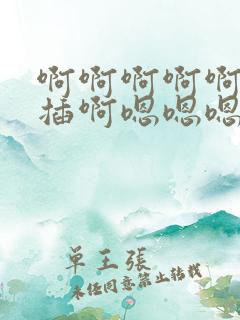 啊啊啊啊啊
插啊嗯嗯嗯
单王張
未经同意禁止转载